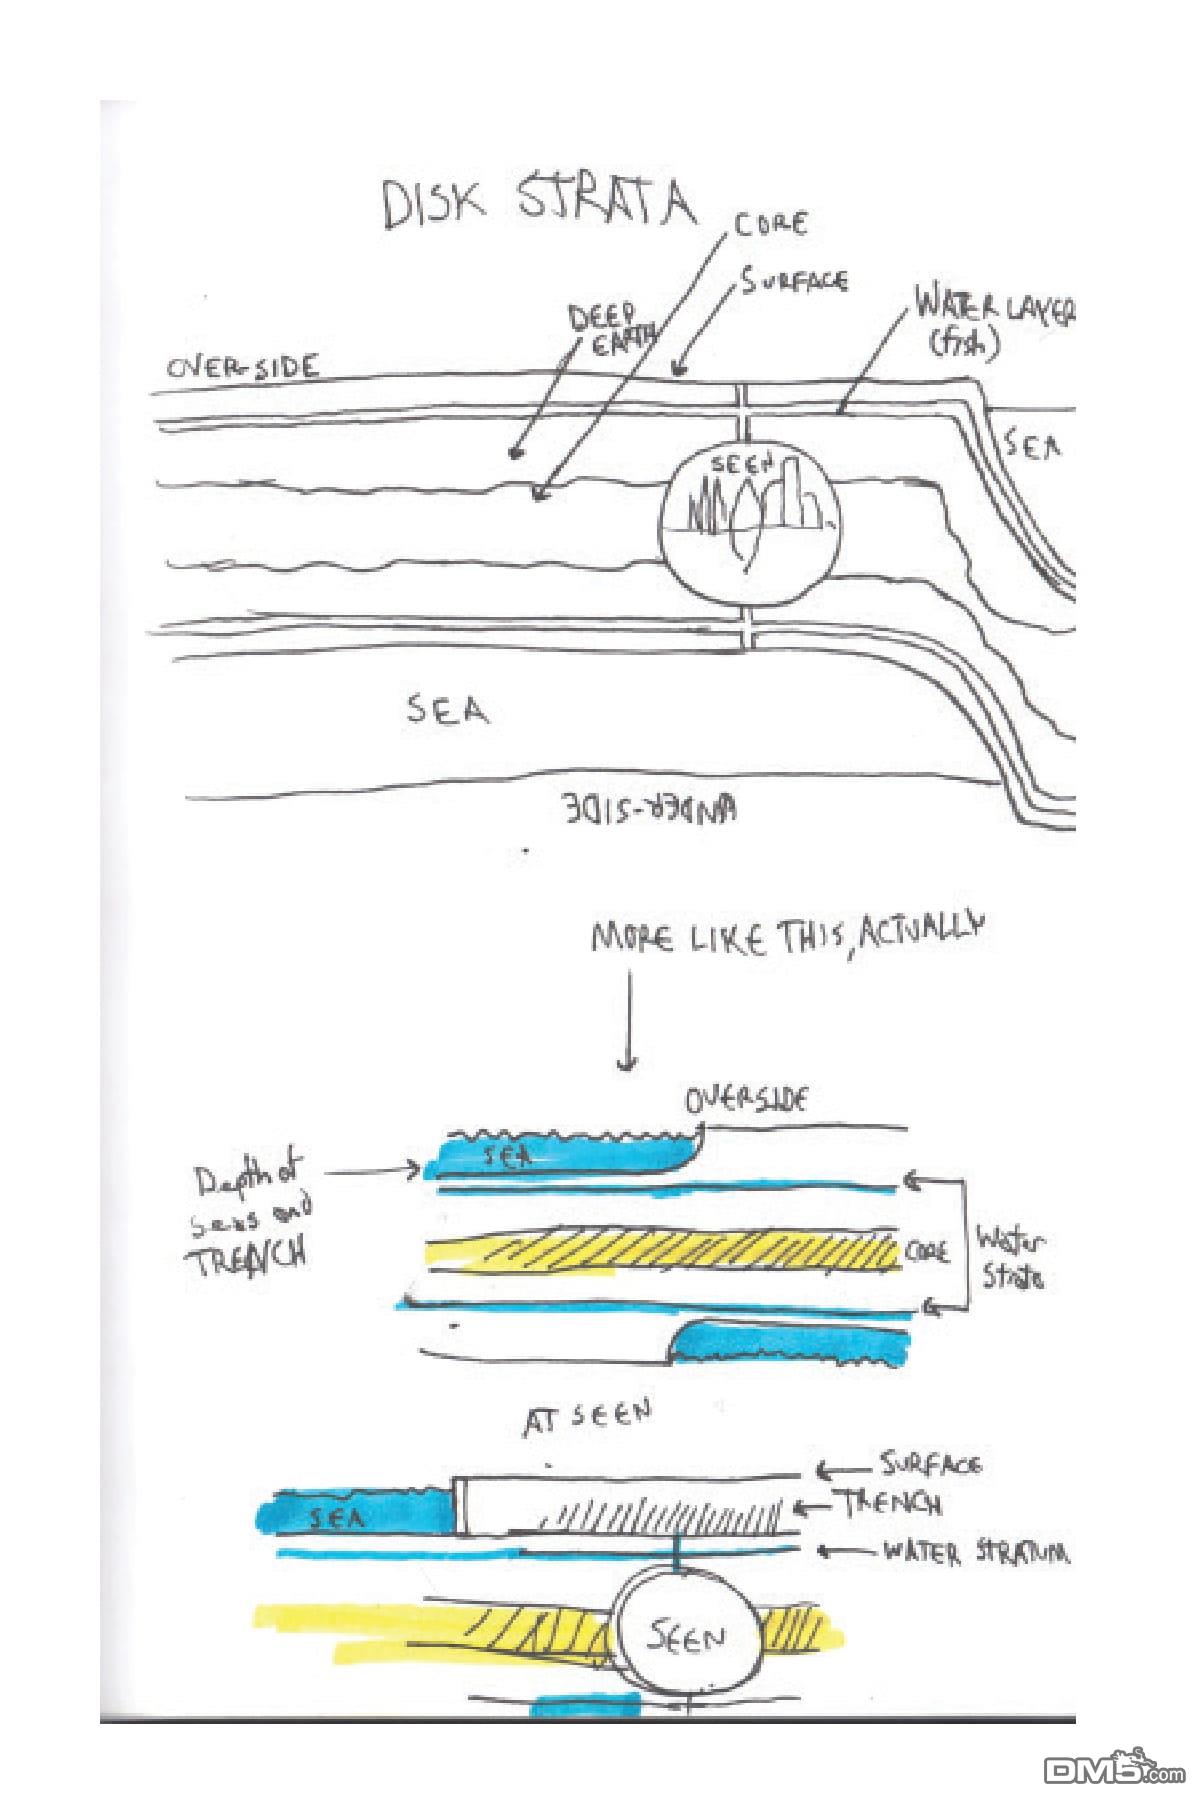 DISK STRATA
CORE
SURFACE
WATER LAYER
(fish)
DEEP
EARTH
OVER-SIDE
SEA
SEEN
SEA
UNDER-SIDE
MORE LIKE THIS, ACTUALLY
OVERSIDE
SEA
Depth of
seas and
TRENCH
CORE
Water
Strata
AT SEEN
SURFACE
TRENCH
SEA
WATER STRATUM
SEEN
DM5.com